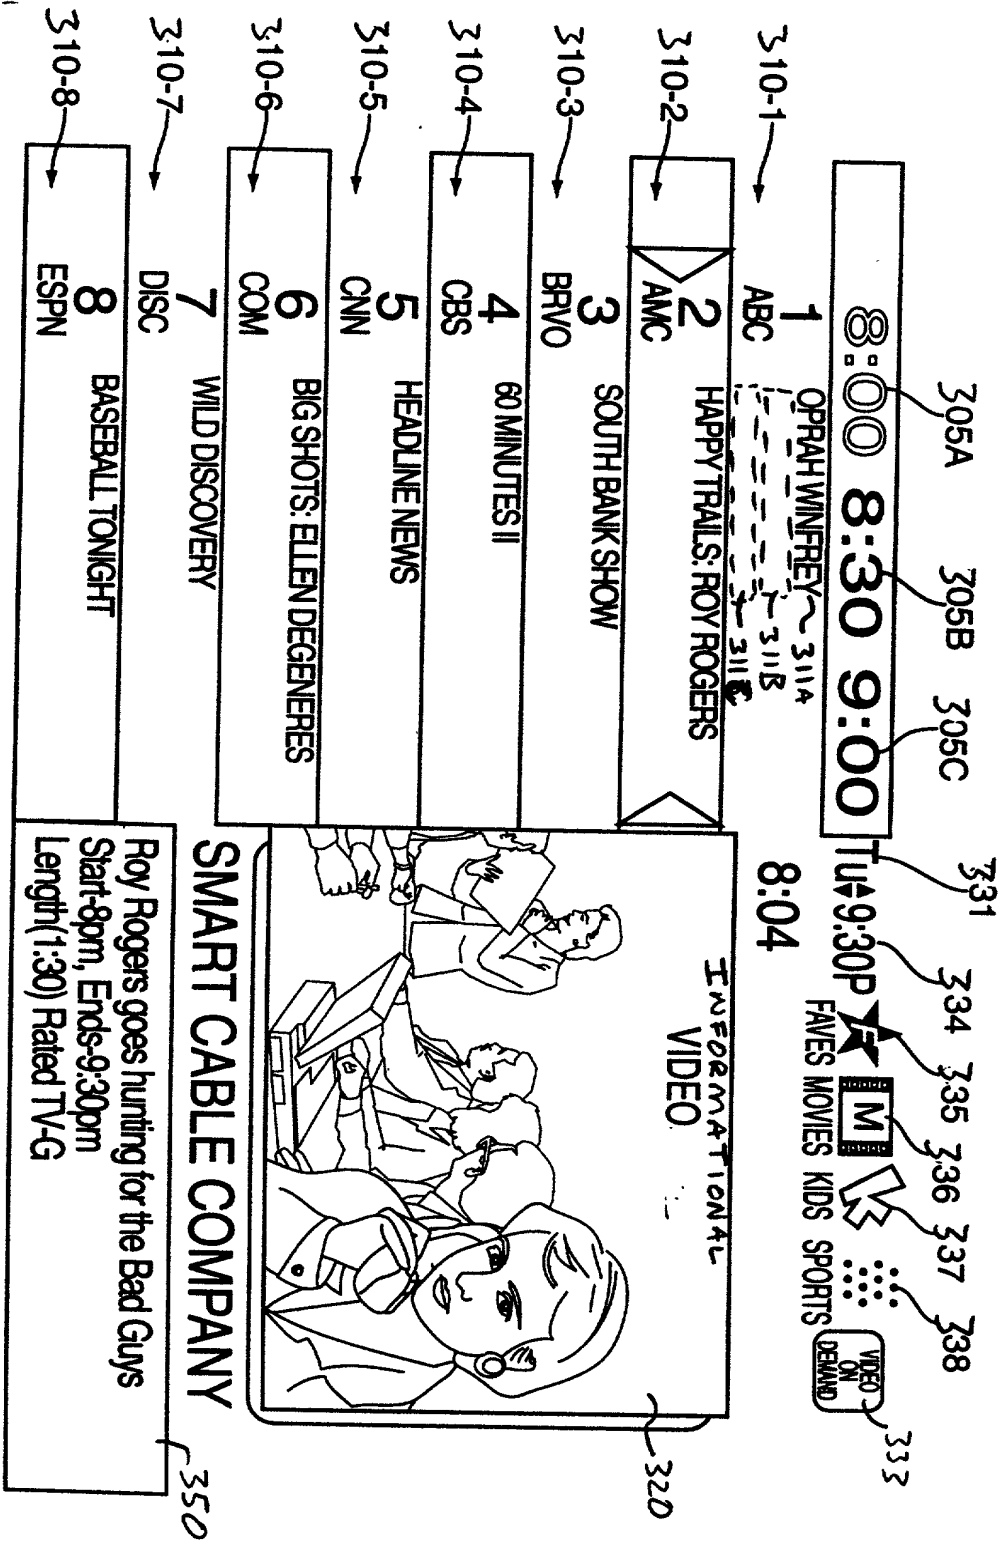 305A 305B 305C 331 334 335 336 337 338 333
8:00 8:30 9:00 Tu 9:30P F M
FAVES MOVIES KIDS SPORTS VIDEO ON DEMAND
8:04
310-1 1 ABC OPRAH WINFREY 311A
311B
310-2 2 AMC HAPPY TRAILS: ROY ROGERS
310-3 3 BRVO SOUTH BANK SHOW
310-4 4 CBS 60 MINUTES II
310-5 5 CNN HEADLINE NEWS
310-6 6 COM BIG SHOTS: ELLEN DEGENERES
310-7 7 DISC WILD DISCOVERY
310-8 8 ESPN BASEBALL TONIGHT
INFORMATIONAL
VIDEO
320
SMART CABLE COMPANY
Roy Rogers goes hunting for the Bad Guys
Start-8pm, Ends-9:30pm
Length(1:30) Rated TV-G
350